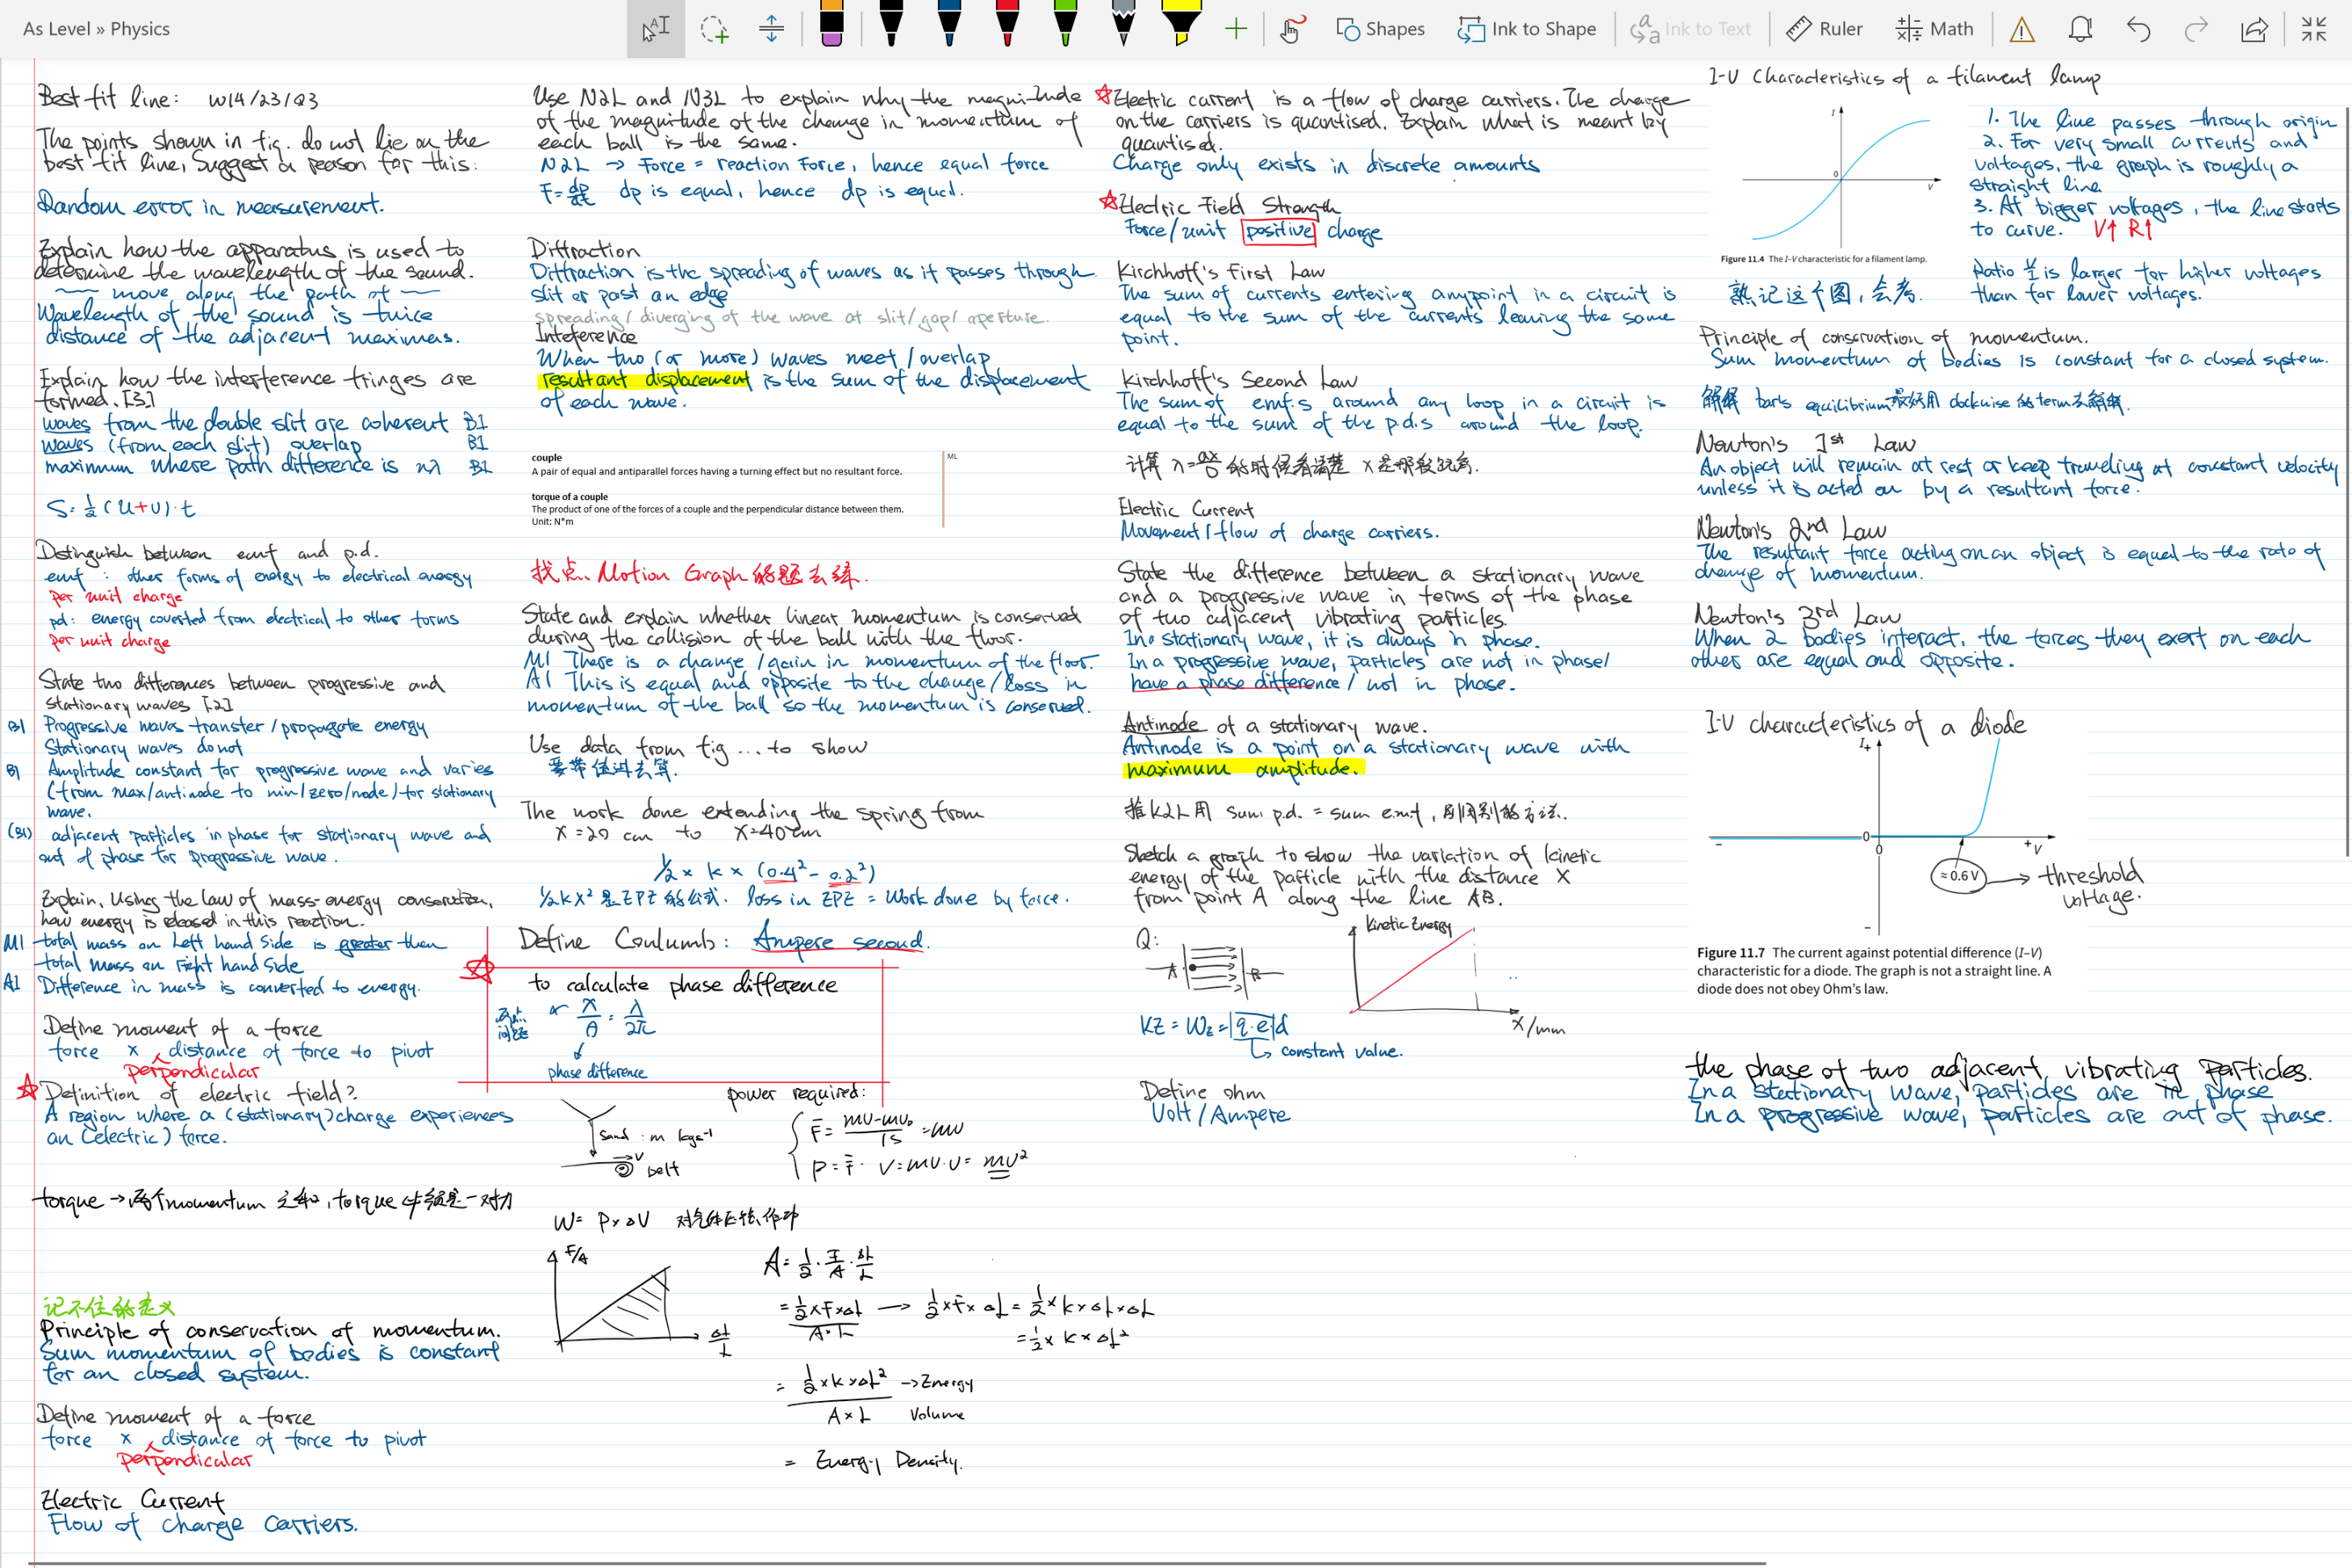 As Level » Physics
Shapes
Ink to Shape
Ink to Text
Ruler
Math
Best fit line: W14/23/Q3
The points shown in fig. do not lie on the
best fit line, Suggest a reason for this:
Random error in measurement.
Explain how the apparatus is used to
determine the wavelength of the sound.
move along the path of
Wavelength of the sound is twice
distance of the adjacent maximas.
Explain how the interference fringes are
formed. [3]
waves from the double slit are coherent B1
waves (from each slit) overlap B1
maximum where path difference is nλ B1
S = ½ (u+v)·t
Distinguish between emf and p.d.
emf : other forms of energy to electrical energy
per unit charge
pd: energy coverted from electrical to other forms
per unit charge
State two differences between progressive and
stationary waves [2]
B1 Progressive waves transfer / propagate energy
Stationary waves do not
B1 Amplitude constant for progressive wave and varies
(from max/antinode to min/zero/node) for stationary
wave.
(B1) adjacent particles in phase for stationary wave and
out of phase for progressive wave.
Explain, Using the law of mass-energy conservation,
how energy is released in this reaction.
M1 total mass on Left hand side is greater than
total mass on right hand side
A1 Difference in mass is converted to energy.
Define moment of a force
force × distance of force to pivot
perpendicular
Definition of electric field?
A region where a (stationary) charge experiences
an (electric) force.
torque → 两个momentum 之和, torque 必须是一对力
记不住的定义
Principle of conservation of momentum.
Sum momentum of bodies is constant
for an closed system.
Define moment of a force
force × distance of force to pivot
perpendicular
Electric Current
Flow of charge carriers.
Use N2L and N3L to explain why the magnitude
of the magnitude of the change in momentum of
each ball is the same.
N2L → Force = reaction Force, hence equal force
F = dp/dt dp is equal, hence dp is equal.
Diffraction
Diffraction is the spreading of waves as it passes through
slit or past an edge
spreading / diverging of the wave at slit/gap/ aperture.
Inteference
When two (or more) waves meet / overlap
resultant displacement is the sum of the displacement
of each wave.
couple
A pair of equal and antiparallel forces having a turning effect but no resultant force.
torque of a couple
The product of one of the forces of a couple and the perpendicular distance between them.
Unit: N*m
ML
找点. Motion Graph 解题方法.
State and explain whether linear momentum is conserved
during the collision of the ball with the floor.
M1 There is a change / gain in momentum of the floor.
A1 This is equal and opposite to the change / loss in
momentum of the ball so the momentum is conserved.
Use data from fig ... to show
要带值进去算.
The work done extending the spring from
x = 20 cm to x = 40 cm
½ × k × (0.4² - 0.2²)
½kx² 是 EPE 的公式. loss in EPE = Work done by force.
Define Coulumb: Ampere second.
to calculate phase difference
x/θ = λ/2π
phase difference
Sand : m kgs⁻¹
v
belt
power required:
F = (mv-mv₀)/1s = mv
P = F · v = mv·v = mv²
W = P×ΔV
F/A
ΔL/L
A = ½ · F/A · ΔL/L
= (½×F×ΔL)/(A·L) → ½×F×ΔL = ½×k×ΔL×ΔL
= ½×k×ΔL²
= (½×k×ΔL²)/(A×L) → Energy
Volume
= Energy Density.
Electric current is a flow of charge carriers. The charge
on the carriers is quantised. Explain what is meant by
quantised.
Charge only exists in discrete amounts
Electric Field Strength
Force/unit positive charge
Kirchhoff's First Law
The sum of currents entering anypoint in a circuit is
equal to the sum of the currents leaving the same
point.
Kirchhoff's Second Law
The sum of emf.s around any loop in a circuit is
equal to the sum of the p.d.s around the loop.
计算 λ = ax/D 的时候看清楚 x 是哪段距离.
Electric Current
Movement / flow of charge carriers.
State the difference between a stationary wave
and a progressive wave in terms of the phase
of two adjacent vibrating particles.
In a stationary wave, it is always in phase.
In a progressive wave, particles are not in phase/
have a phase difference / not in phase.
Antinode of a stationary wave.
Antinode is a point on a stationary wave with
maximum amplitude.
推 K2L 用 sum p.d. = sum e.m.f, 别用别的方法.
Sketch a graph to show the variation of kinetic
energy of the particle with the distance x
from point A along the line AB.
Q:
A
B
Kinetic Energy
x/mm
KE = WE = q·e d
constant value.
Define ohm
Volt / Ampere
I-V Characteristics of a filament lamp
I
0
V
Figure 11.4 The I–V characteristic for a filament lamp.
熟记这个图, 会考.
1. The line passes through origin
2. For very small currents and
voltages, the graph is roughly a
straight line
3. At bigger voltages, the line starts
to curve. V↑ R↑
Ratio V/I is larger for higher voltages
than for lower voltages.
Principle of conservation of momentum.
Sum momentum of bodies is constant for a closed system.
解释 bar's equilibrium 最好用 clockwise 的 term 去解释.
Newton's 1st Law
An object will remain at rest or keep traveling at constant velocity
unless it is acted on by a resultant force.
Newton's 2nd Law
The resultant force acting on an object is equal to the rate of
change of momentum.
Newton's 3rd Law
When 2 bodies interact, the forces they exert on each
other are equal and opposite.
I-V characteristics of a diode
I+
–
0
0
+V
≈ 0.6 V → threshold
voltage.
–
Figure 11.7 The current against potential difference (I–V)
characteristic for a diode. The graph is not a straight line. A
diode does not obey Ohm's law.
the phase of two adjacent, vibrating Particles.
In a stationary wave, particles are in phase
In a progressive wave, particles are out of phase.